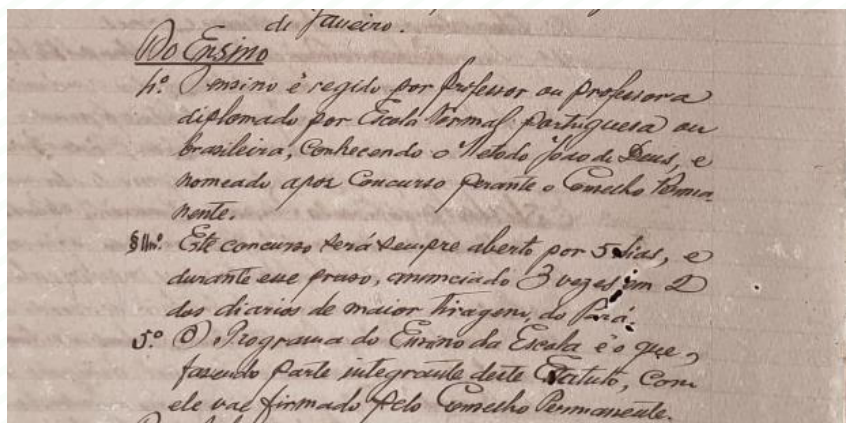 de Janeiro.
Do Ensino
4º. O ensino é regido por professor ou professora
diplomado por Escola Normal Portuguesa ou
brasileira, conhecendo o Metodo João de Deus, e
nomeado apoz Concurso perante o Conselho Perma-
nente.
§ Un.º Este concurso será sempre aberto por 5 dias, e
durante esse praso, annunciado 3 vezes em 2
dos diarios de maior tiragem, do Pará.
5.º O Programa do Ensino da Escola é o que,
fazendo parte integrante deste Estatuto, com
ele vae firmado pelo Conselho Permanente.